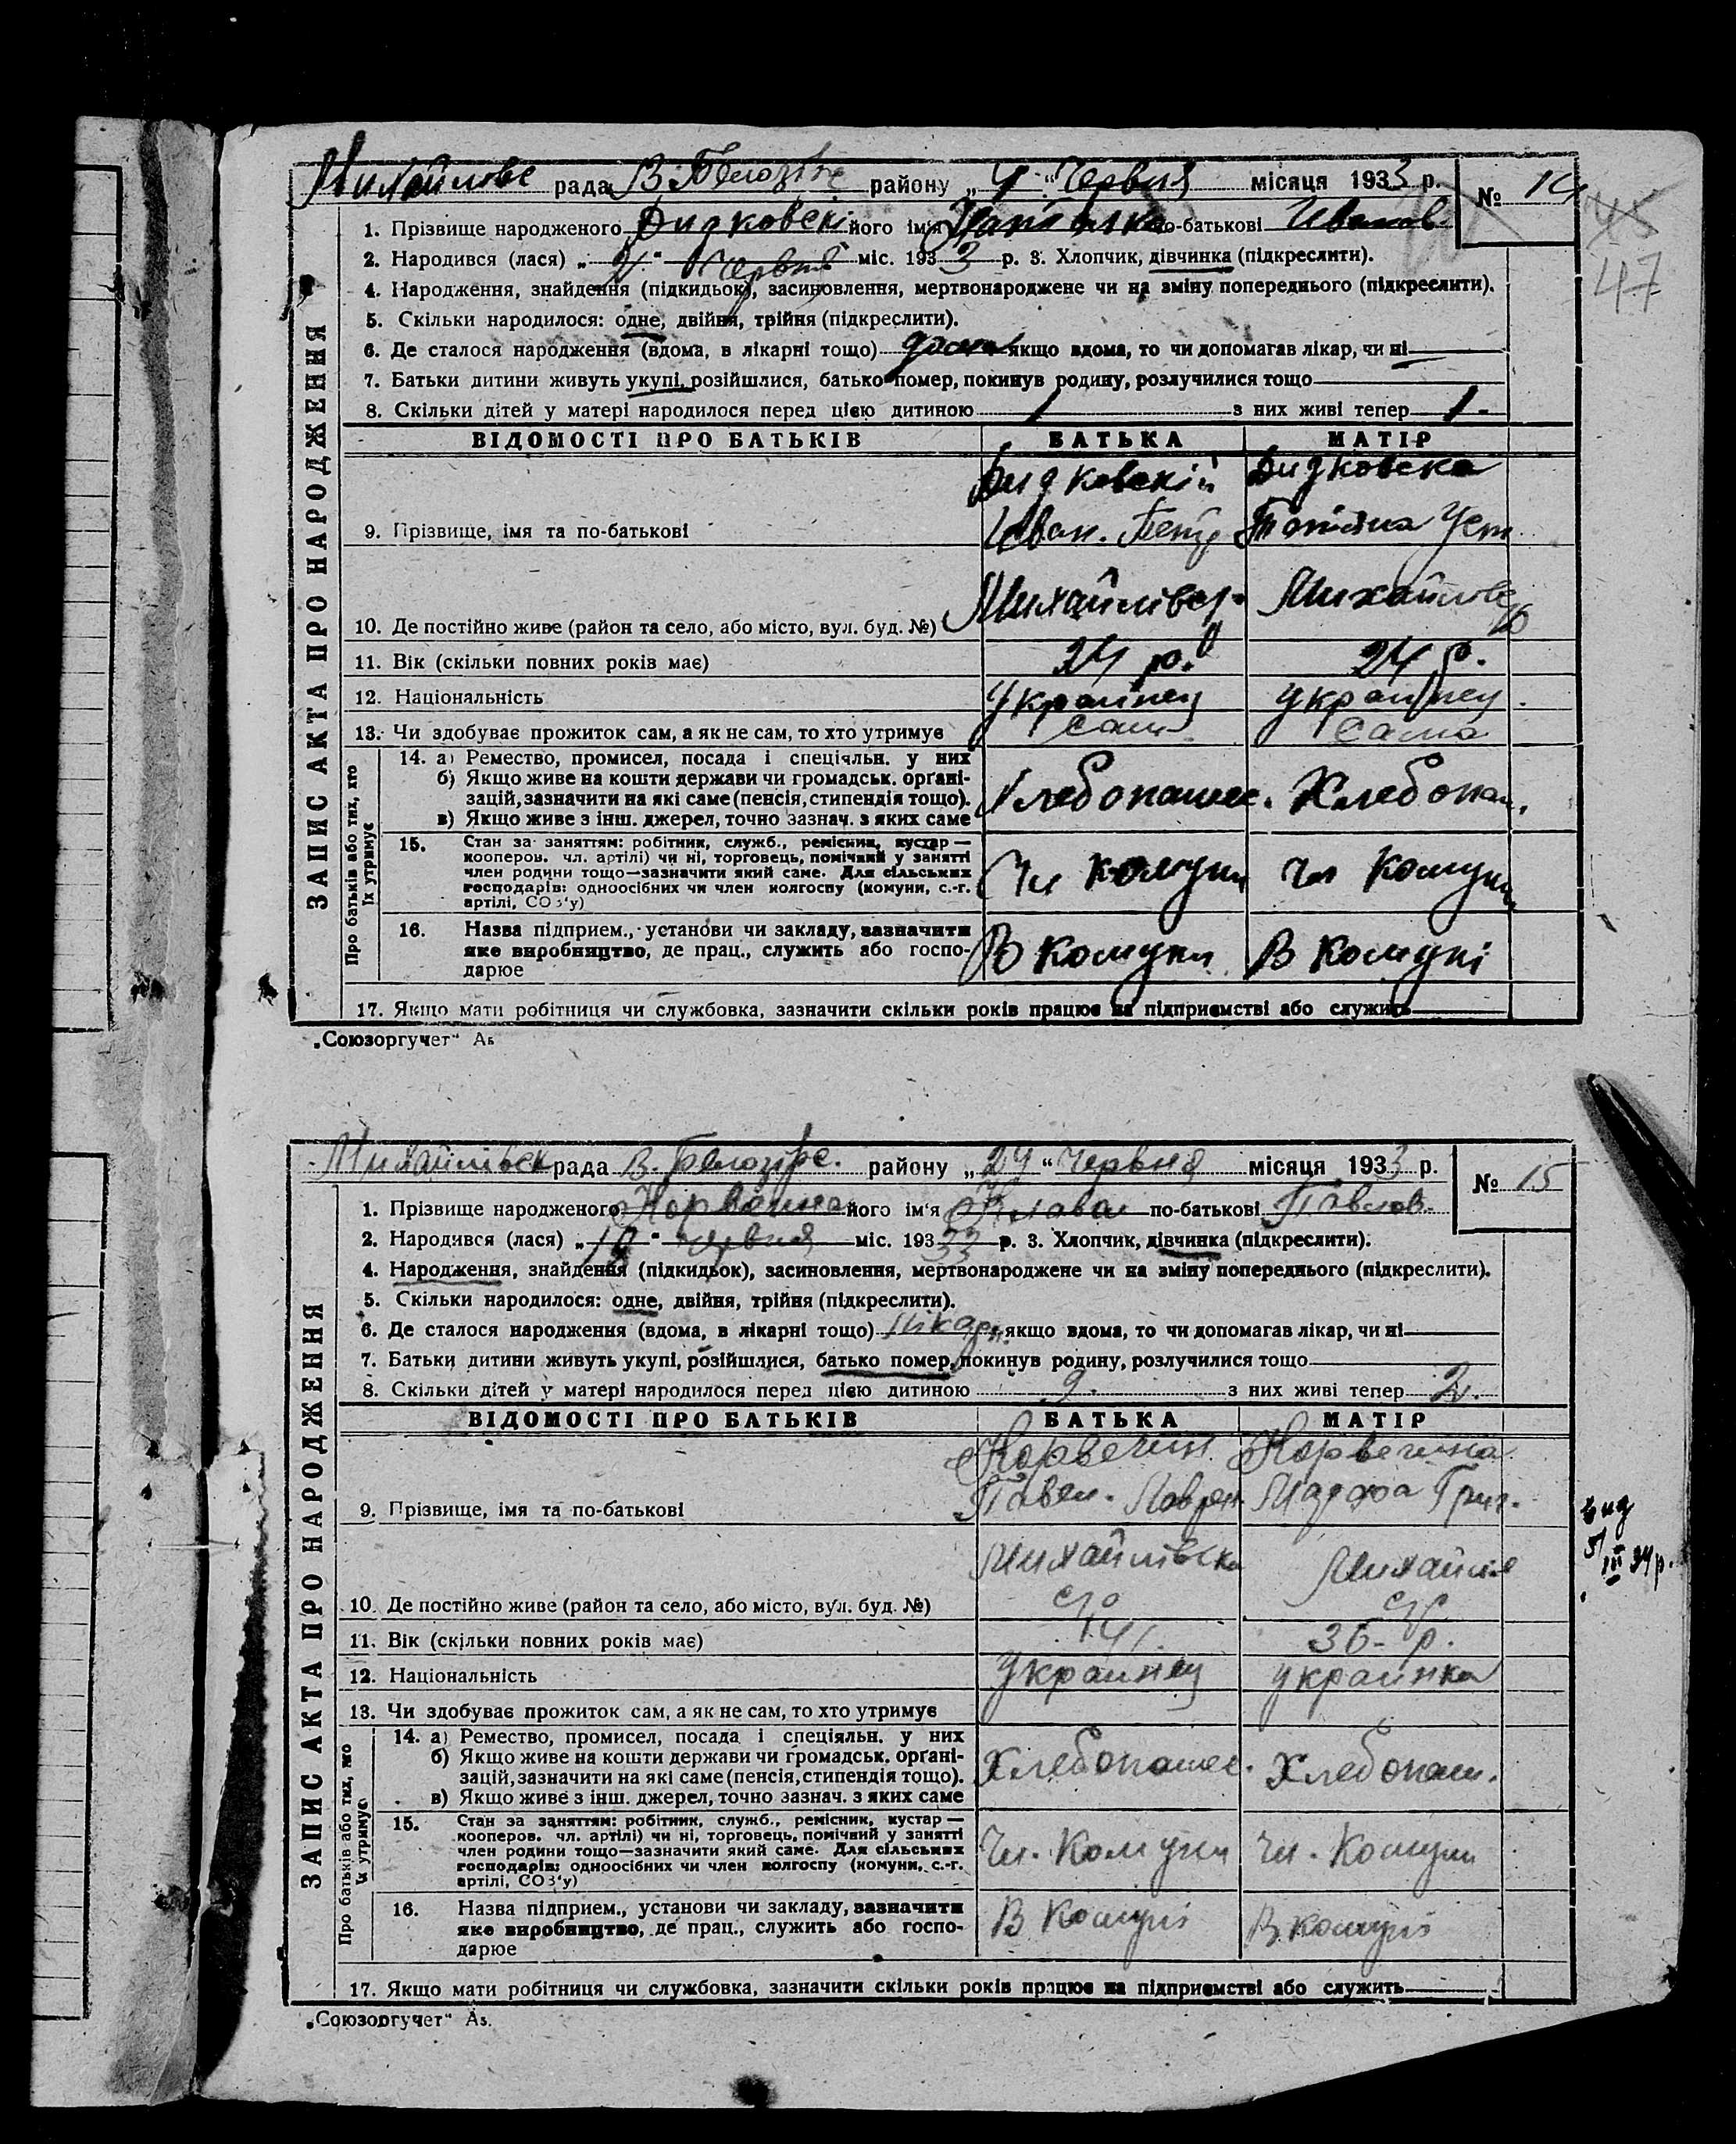 Михайлівс рада В. Белозірс району „4“ Червня місяця 1933 р. № 14
45
47
1. Прізвище народженого його ім'я по-батькові Иванов
2. Народився (лася) „2“ Червня міс. 1933 р. 3. Хлопчик, дівчинка (підкреслити).
4. Народження, знайдення (підкидьок), засиновлення, мертвонароджене чи на зміну попереднього (підкреслити).
5. Скільки народилося: одне, двійня, трійня (підкреслити).
6. Де сталося народження (вдома, в лікарні тощо) дома якщо вдома, то чи допомагав лікар, чи ні
7. Батьки дитини живуть укупі, розійшлися, батько помер, покинув родину, розлучилися тощо
8. Скільки дітей у матері народилося перед цією дитиною 1 з них живі тепер 1
ЗАПИС АКТА ПРО НАРОДЖЕННЯ
ВІДОМОСТІ ПРО БАТЬКІВ БАТЬКА МАТІР
Видковскій Видковска
9. Прізвище, імя та по-батькові Иван. Петр Татіяна Уст
10. Де постійно живе (район та село, або місто, вул. буд. №) Михайлівс Михайлове
11. Вік (скільки повних років має) 24 р. 24 р.
12. Національність Украинец украинец
13. Чи здобуває прожиток сам, а як не сам, то хто утримує Сам Сама
Про батьків або тих, хто їх утримує
14. а) Ремество, промисел, посада і спеціяльн. у них
б) Якщо живе на кошти держави чи громадськ. органі-
зацій, зазначити на які саме (пенсія, стипендія тощо). Хлебопашес. Хлебопаш.
в) Якщо живе з інш. джерел, точно зазнач. з яких саме
15. Стан за заняттям: робітник, служб., ремісник, кустар —
кооперов. чл. артілі) чи ні, торговець, помічний у занятті
член родини тощо—зазначити який саме. Для сільських Чл Комуни Чл Комуни
господарів: одноосібних чи член колгоспу (комуни, с.-г.
артілі, СОЗ'у)
16. Назва підприєм., установи чи закладу, зазначити
яке виробництво, де прац., служить або госпо- В Комуни В Комуні
дарює
17. Якщо мати робітниця чи службовка, зазначити скільки років працює на підприємстві або служить
„Союзоргучет“
Михайлівск рада В. Белозірс. району „24“ Червня місяця 1933 р. № 15
1. Прізвище народженого його ім'я Клава по-батькові Павлов.
2. Народився (лася) „ “ червня міс. 19333 р. 3. Хлопчик, дівчинка (підкреслити).
4. Народження, знайдення (підкидьок), засиновлення, мертвонароджене чи на зміну попереднього (підкреслити).
5. Скільки народилося: одне, двійня, трійня (підкреслити).
6. Де сталося народження (вдома, в лікарні тощо) лікар. якщо вдома, то чи допомагав лікар, чи ні
7. Батьки дитини живуть укупі, розійшлися, батько помер, покинув родину, розлучилися тощо
8. Скільки дітей у матері народилося перед цією дитиною 2. з них живі тепер 2.
ЗАПИС АКТА ПРО НАРОДЖЕННЯ
ВІДОМОСТІ ПРО БАТЬКІВ БАТЬКА МАТІР
9. Прізвище, імя та по-батькові Павел. Лаврен. Марфа Григ.
Михайлівска Михайлів
10. Де постійно живе (район та село, або місто, вул. буд. №)
11. Вік (скільки повних років має) 41. 36 р.
12. Національність Украинец украинка
13. Чи здобуває прожиток сам, а як не сам, то хто утримує
Про батьків або тих, хто їх утримує
14. а) Ремество, промисел, посада і спеціяльн. у них
б) Якщо живе на кошти держави чи громадськ. органі- Хлебопашес. Хлебопаш.
зацій, зазначити на які саме (пенсія, стипендія тощо).
в) Якщо живе з інш. джерел, точно зазнач. з яких саме
15. Стан за заняттям: робітник, служб., ремісник, кустар —
кооперов. чл. артілі) чи ні, торговець, помічний у занятті
член родини тощо—зазначити який саме. Для сільських Чл. Комуни Чл. Комуни
господарів: одноосібних чи член колгоспу (комуни, с.-г.
артілі, СОЗ'у)
16. Назва підприєм., установи чи закладу, зазначити В Комуні В комуні
яке виробництво, де прац., служить або госпо-
дарює
17. Якщо мати робітниця чи службовка, зазначити скільки років працює на підприємстві або служить
„Союзоргучет“
вид
5/III 34р.